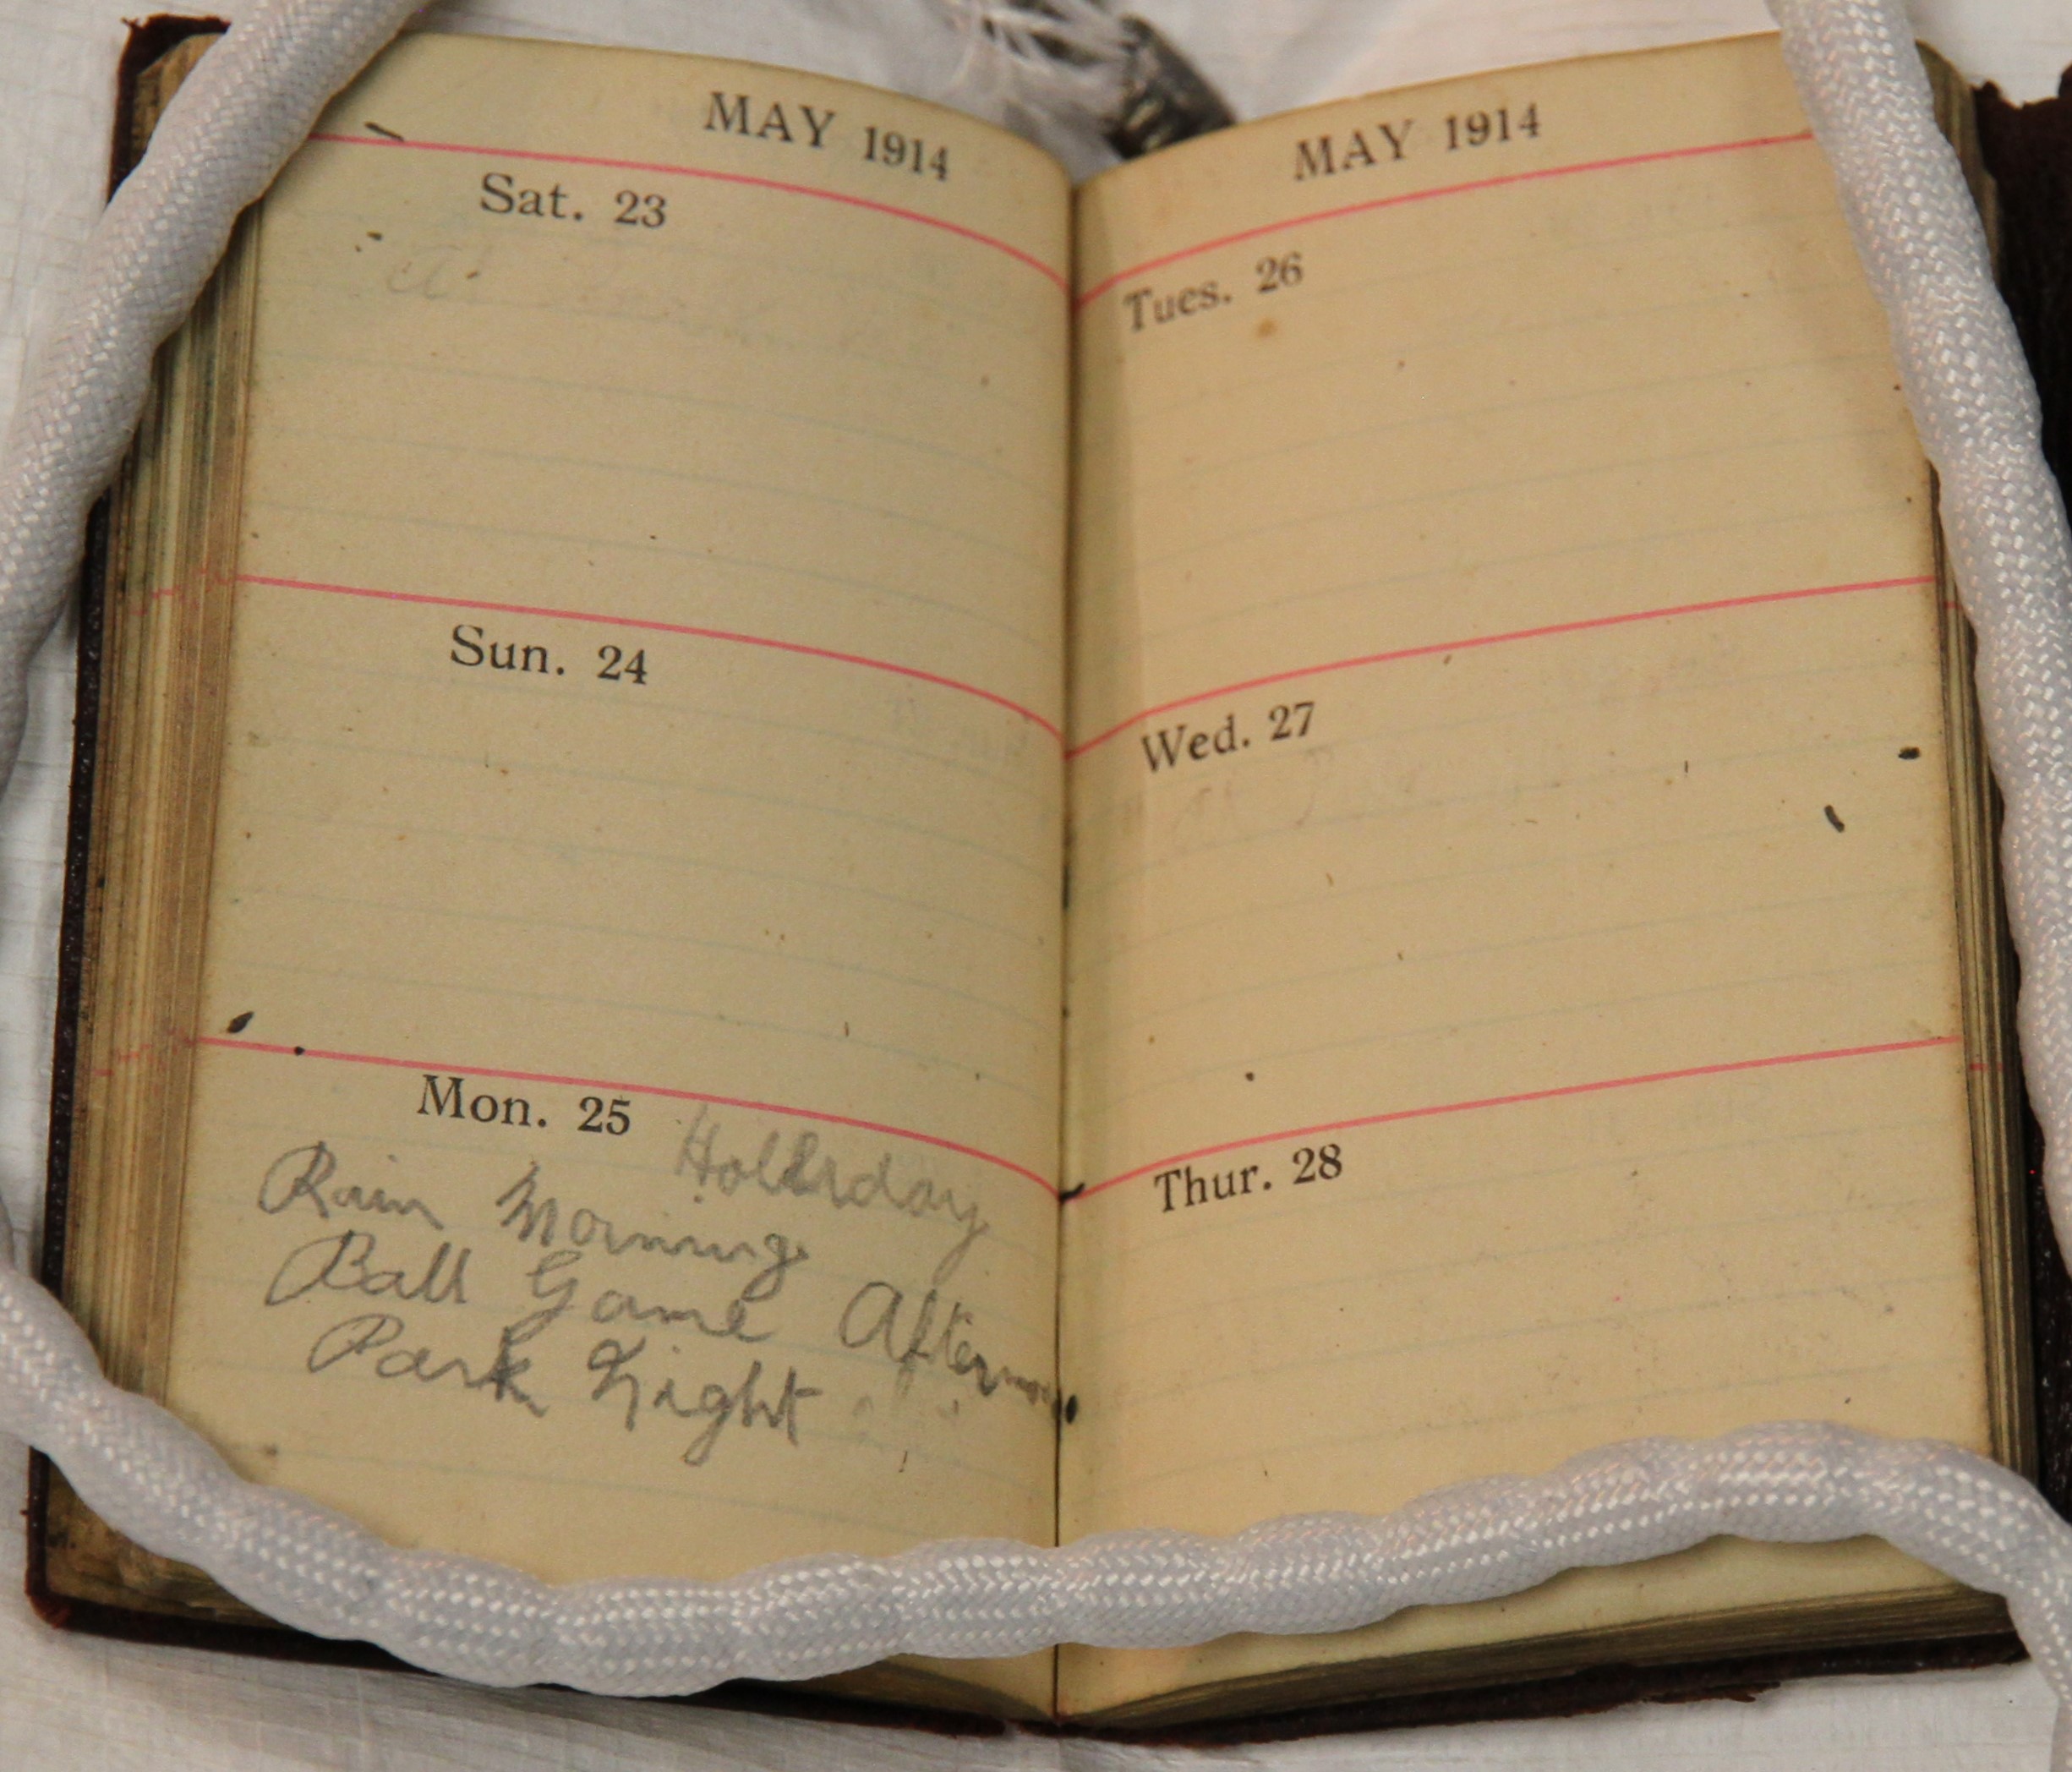 MAY 1914
Sat. 23
At
Sun. 24
Mon. 25 Holerday
Rain Morning
Ball Game Afternoon
Park Night
MAY 1914
Tues. 26
Wed. 27
At
Thur. 28